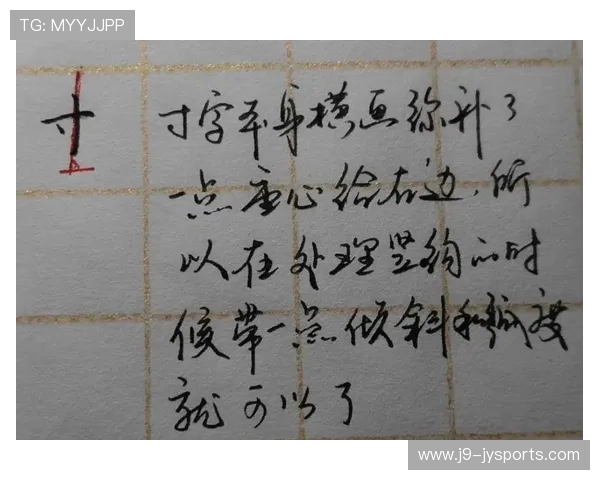 TG: MYYJJPP
寸
寸字本身横画弥补了
一点重心给右边,所
以在处理竖钩的时
候带一点倾斜和弧度
就可以了
www.j9-jysports.com